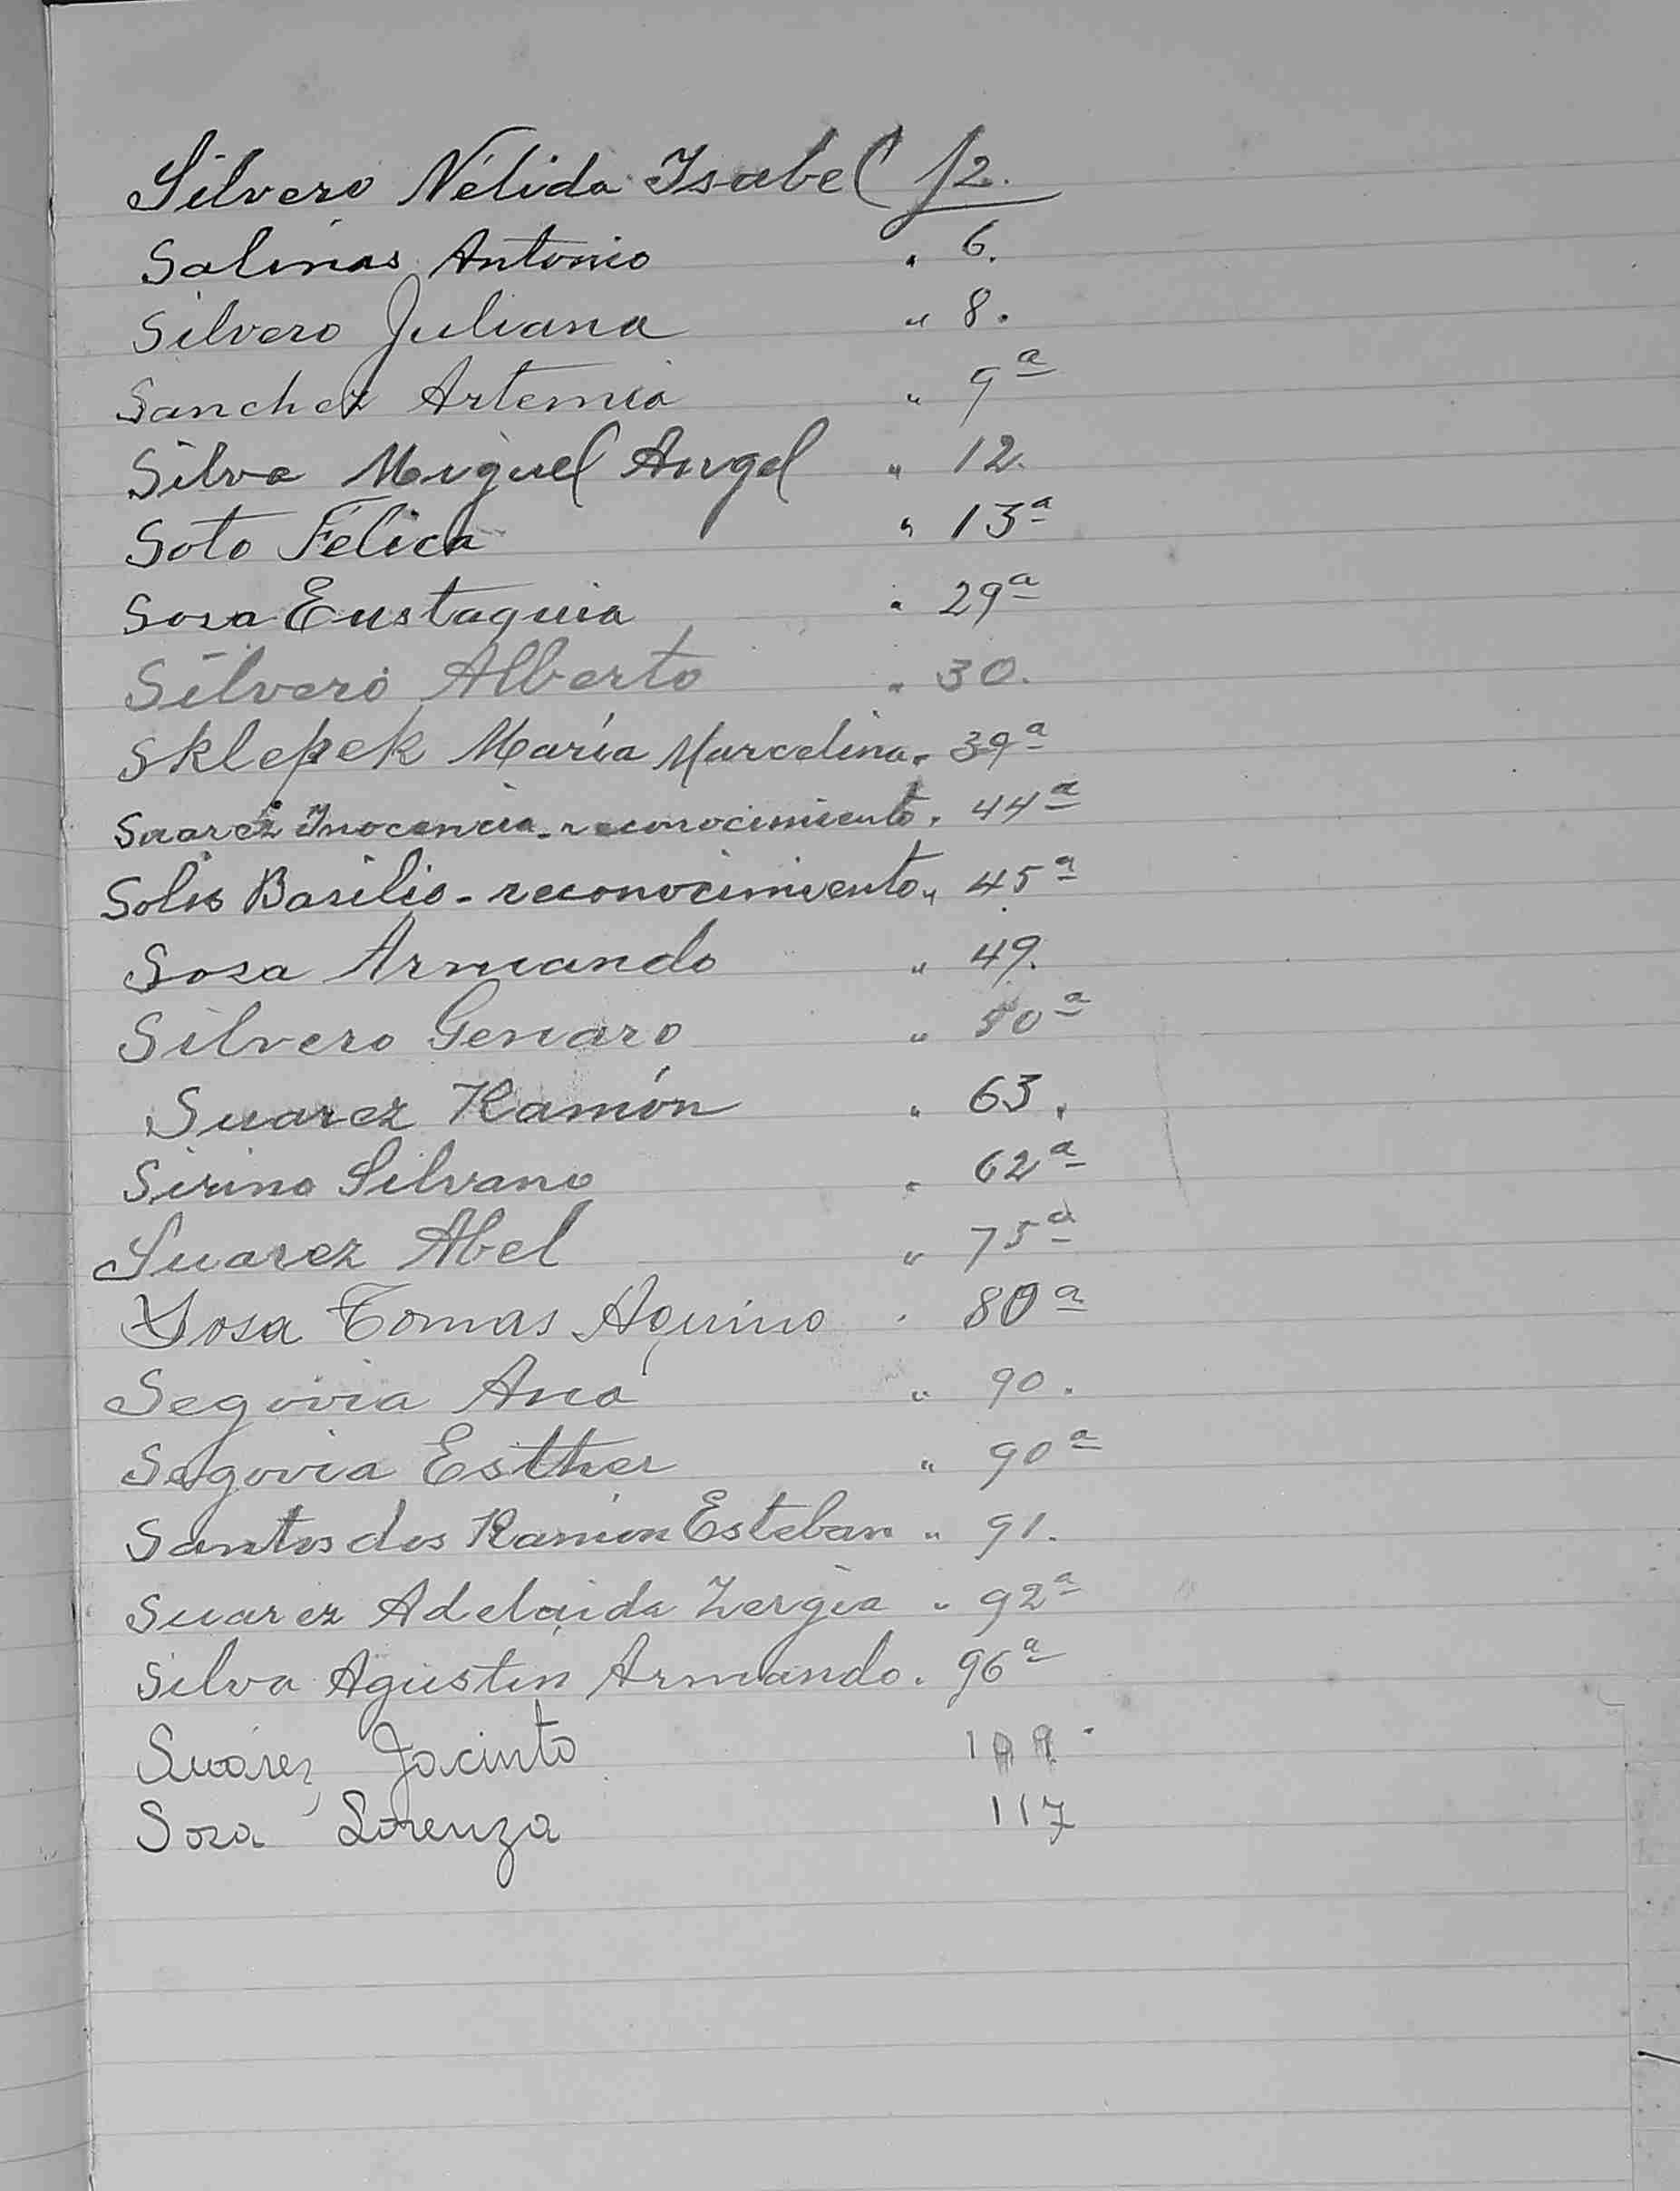 Silvero Nélida Isabel f 2.
Salinas Antonio " 6.
Silvero Juliana " 8.
Sanchez Artemia " 9ª
Silva Miguel Angel " 12.
Soto Félica " 13ª
Sosa Eustaquia " 29ª
Silvero Alberto " 30.
Sklepek María Marcelina " 39ª
Suarez Inocencia - reconocimiento " 44ª
Solis Basilio - reconocimiento " 45ª
Sosa Armando " 49.
Silvero Genaro " 50ª
Suarez Ramón " 63.
Sirino Silvano " 62ª
Suarez Abel " 75ª
Sosa Tomas Aquino " 80ª
Segovia Ana " 90.
Segovia Estther " 90ª
Santos dos Ramón Esteban " 91.
Suarez Adelaida Zergia " 92ª
Silva Agustin Armando " 96ª
Suárez Jacinto
Sosa Lorenza 117